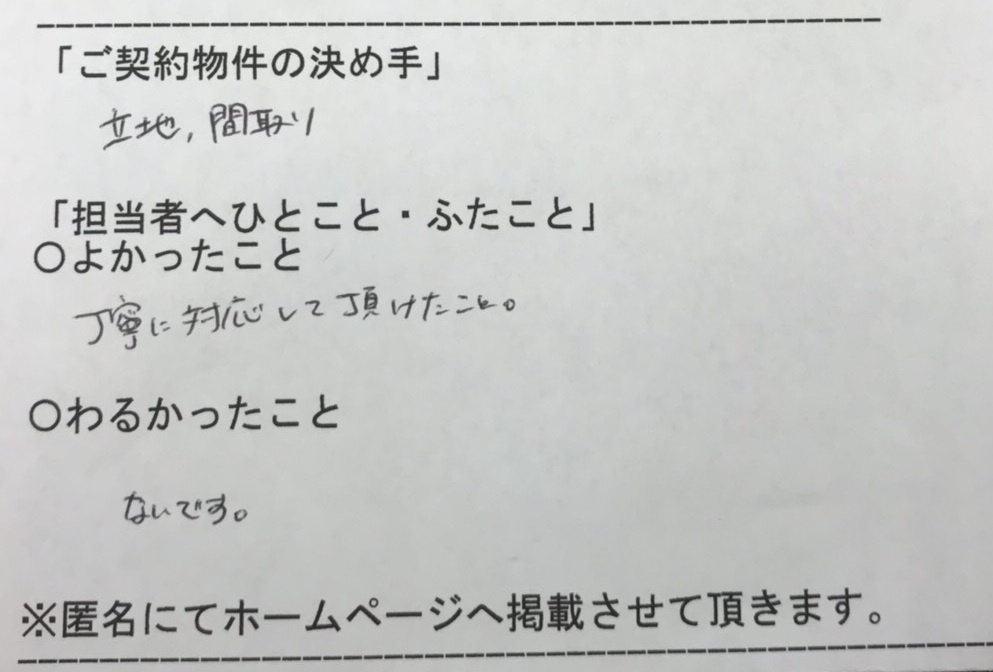 「ご契約物件の決め手」
立地,間取り
「担当者へひとこと・ふたこと」
〇よかったこと
丁寧に対応して頂けたこと。
〇わるかったこと
ないです。
※匿名にてホームページへ掲載させて頂きます。